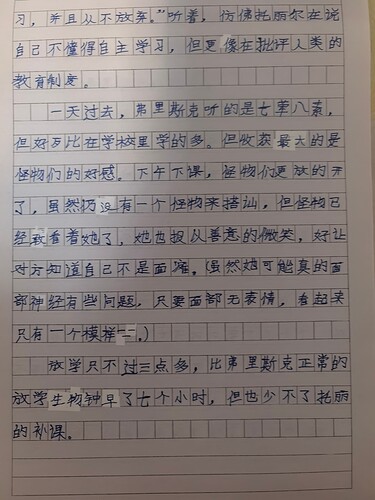 习，并且从不放弃。”听着，仿佛托丽尔在说
自己不懂得自主学习，但更像在批评人类的
教育制度。
一天过去，弗里斯克听的是七荤八素，
但好歹比在学校里学的多。但收获最大的是
怪物们的好感。下午下课，怪物们更放的开
了，虽然仍没有一个怪物来搭讪，但怪物已
经敢看着她了，她也报以善意的微笑，好让
对方知道自己不是面瘫。（虽然她可能真的面
部神经有些问题，只要面部无表情，看起来
只有一个模样一。）
放学只不过三点多，比弗里斯克正常的
放学生物钟早了七个小时，但也少不了托丽
的补课。